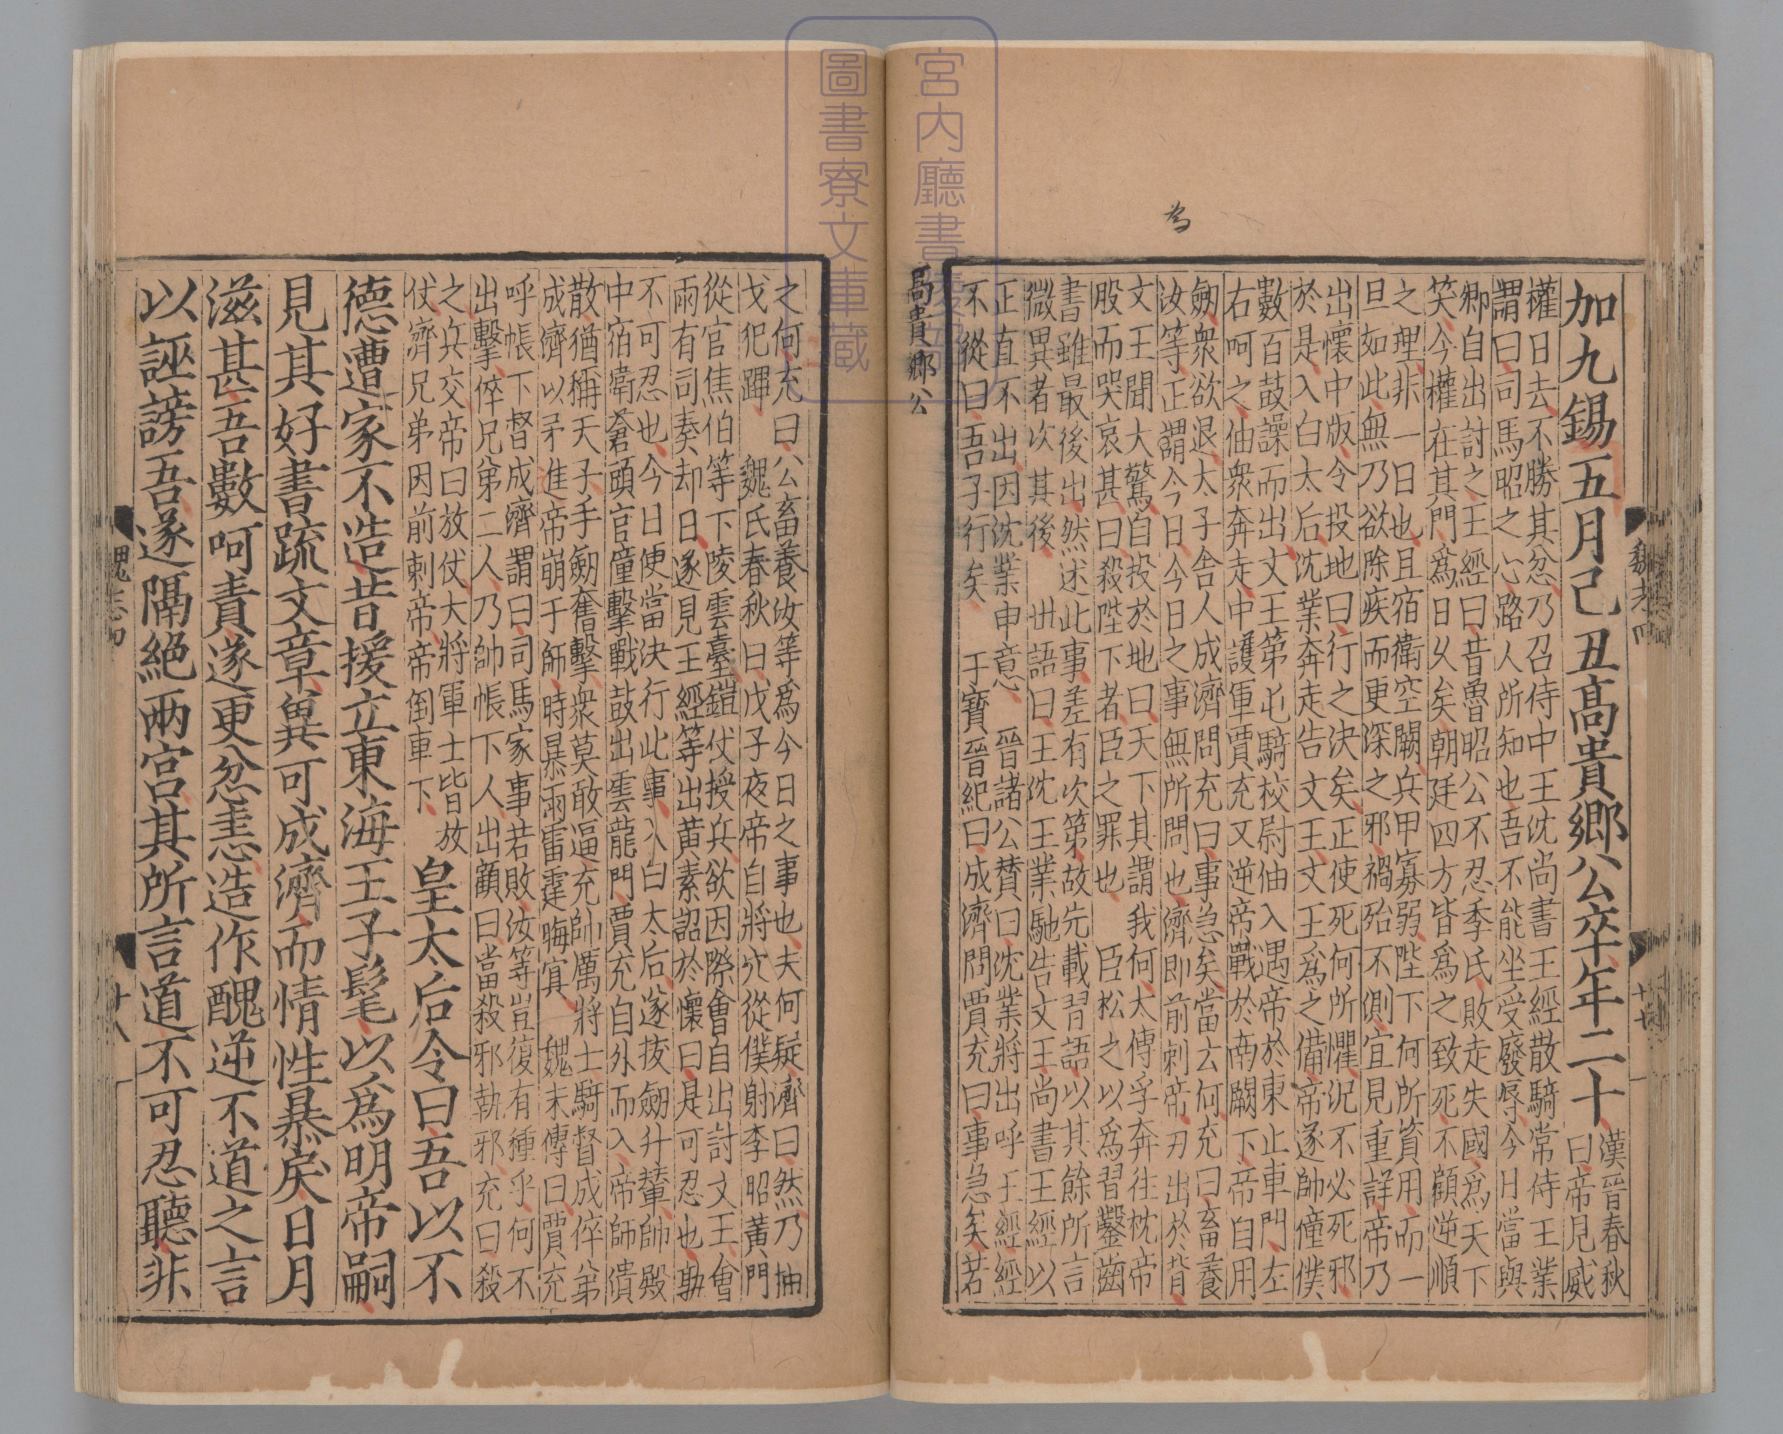 加九錫五月己丑高貴鄉公卒年二十
漢晉春秋
曰帝見威
權日去不勝其忿乃召侍中王沈尚書王經散騎常侍王業
謂曰司馬昭之心路人所知也吾不能坐受廢辱今日當與
卿自出討之王經曰昔魯昭公不忍季氏敗走失國爲天下
笑今權在其門爲日久矣朝廷四方皆爲之致死不顧逆順
之理非一日也且宿衛空闕兵甲寡弱陛下何所資用而一
旦如此無乃欲除疾而更深之邪禍殆不測宜見重詳帝乃
出懷中版令投地曰行之決矣正使死何所懼况不必死邪
於是入白太后沈業奔走告文王文王爲之備帝遂帥僮僕
數百鼓譟而出文王第屯騎校尉伷入遇帝於東止車門左
右呵之伷衆奔走中護軍賈充又逆帝戰於南闕下帝自用
劒衆欲退太子舍人成濟問充曰事急矣當云何充曰畜養
汝等正謂今日今日之事無所問也濟即前刺帝刃出於背
文王聞大驚自投於地曰天下其謂我何太傅孚奔往枕帝
股而哭哀甚曰殺陛下者臣之罪也 臣松之以爲習鑿齒
書雖最後出然述此事差有次第故先載習語以其餘所言
微異者次其後 世語曰王沈王業馳告文王尚書王經以
正直不出因沈業申意 晉諸公贊曰沈業將出呼王經經
不從曰吾子行矣 干寶晉紀曰成濟問賈充曰事急矣若
高貴鄉公
爲
魏志四
廿七
之何充曰公畜養汝等爲今日之事也夫何疑濟曰然乃抽
戈犯蹕 魏氏春秋曰戊子夜帝自將宂從僕射李昭黃門
從官焦伯等下陵雲臺鎧仗授兵欲因際會自出討文王會
雨有司奏却日遂見王經等出黃素詔於懷曰是可忍也孰
不可忍也今日便當決行此事入白太后遂拔劒升輦帥殿
中宿衛蒼頭官僮擊戰鼓出雲龍門賈充自外而入帝師潰
散猶稱天子手劒奮擊衆莫敢逼充帥厲將士騎督成倅弟
成濟以矛進帝崩于師時暴雨雷霆晦冥 魏末傳曰賈充
呼帳下督成濟謂曰司馬家事若敗汝等豈復有種乎何不
出擊倅兄弟二人乃帥帳下人出顧曰當殺邪執邪充曰殺
之兵交帝曰放仗大將軍士皆放
仗濟兄弟因前刺帝帝倒車下
皇太后令曰吾以不
德遭家不造昔援立東海王子髦以爲明帝嗣
見其好書疏文章冀可成濟而情性暴戾日月
滋甚吾數呵責遂更忿恚造作醜逆不道之言
以誣謗吾遂隔絕兩宮其所言道不可忍聽非
魏志四
廿八
宮内廳書陵部
圖書寮文庫藏